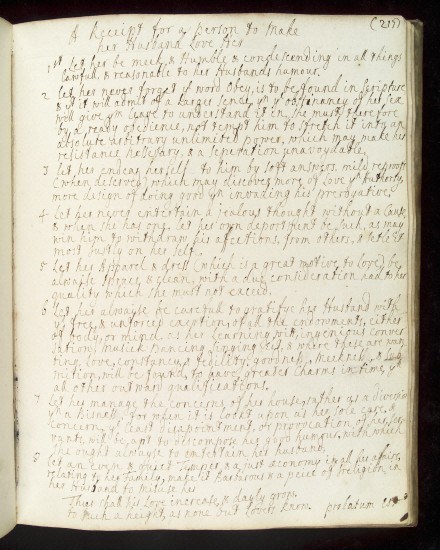 (215)
A Receipt for a person to Make
her Husband Love Her
1st Let her be meek & Humble & condescending in all things
Carefull, & reasonable to her Husbands humour.
2 Let her never forget ye word Obey, is to be found in Scripture
& yt it will admit of a Larger Sence, yn ye of her Sex
will give ym leave to understand it in. she must therefore
by a ready obedience, not tempt him to stretch it into an
absolute arbitrary unlimited power, which may make her
resistance necessary, & a seperation unavoydable.
3 Let her endear herself to him by soft answers mild reproofs
(when deserved) which may discover more of Love yn Authority,
more design of doing good yn invading his prerogative.
4 Let her never entertain a jealous thought without a Cause
& when she has one, let her own deportment be such, as may
win him to withdraw his affections, from others, & settle it
most justly on her self.
5 Let her Apparel & dress (which is a great motive to love) be
alwayse proper, & clean, with a due consideration had to her
quality which she must not exceed.
6 Let her alwayse be careful to gratifye her Husband with
ye free, & unforced of all the endowments, either
of body, or mind, as her Learning, wit, ingenious conver
sation, Musick Dancing Singing &c, & where these are wan
ting, love, constancy, & fidelity, goodness, Meekness, &
will be found, to have greater charms in time, yn
all other outward qualifications.
7 Let her manage the concerns of her house, rather as a diversion
yn a Bisness, for when it is lookt upon as her sole care, &
concern, ye least disapointment, or provocation of her Ser-
vants, will be apt to discompose her good humour, with which
she ought alwayse to entertain her husband.
8 Let an even, & quiet Temper, & a just oeconomy in all her affairs,
relating to her family, make it Barbarous & a peice of Irreligion, in
her Husband to misuse her.
Thus shall his Love increase & dayly grow
to such a height, as none but lovers know. probatum est